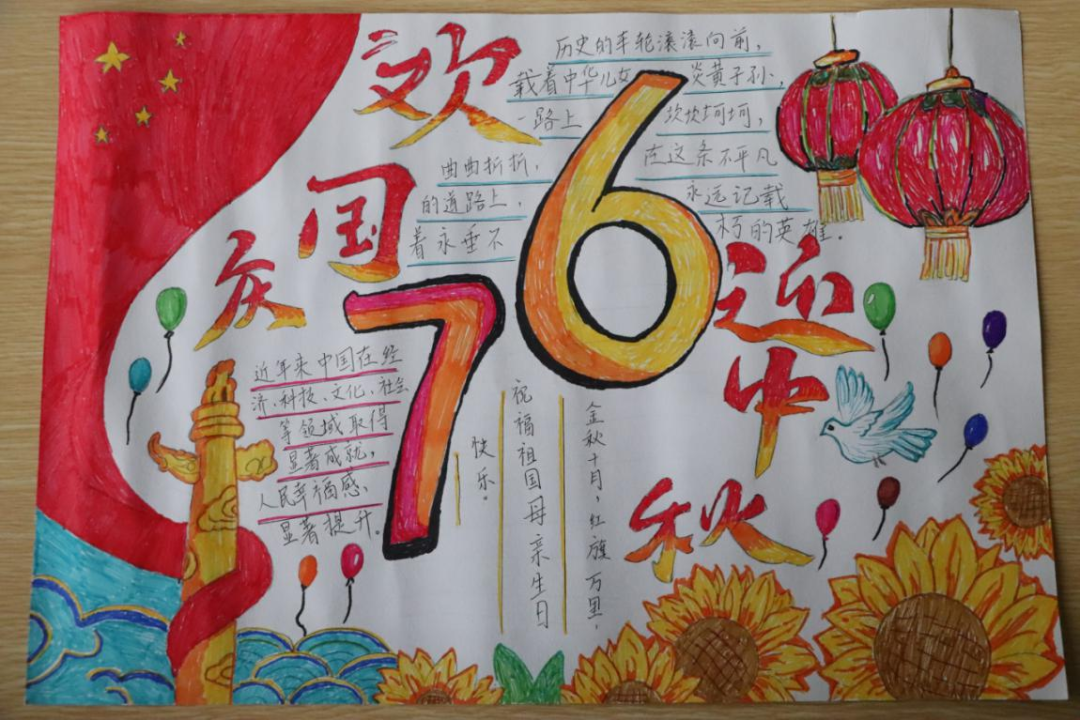 欢国庆
76
迎中秋
历史的车轮滚滚向前，
载着中华儿女 炎黄子孙，
一路上 坎坎坷坷，
曲曲折折， 在这条不平凡
的道路上， 永远记载
着永垂不 朽的英雄。
近年来中国在经
济、科技、文化、社会
等领域取得
显著成就，
人民幸福感、
显著提升。
金秋十月，红旗万里，
祝福祖国母亲生日
快乐。